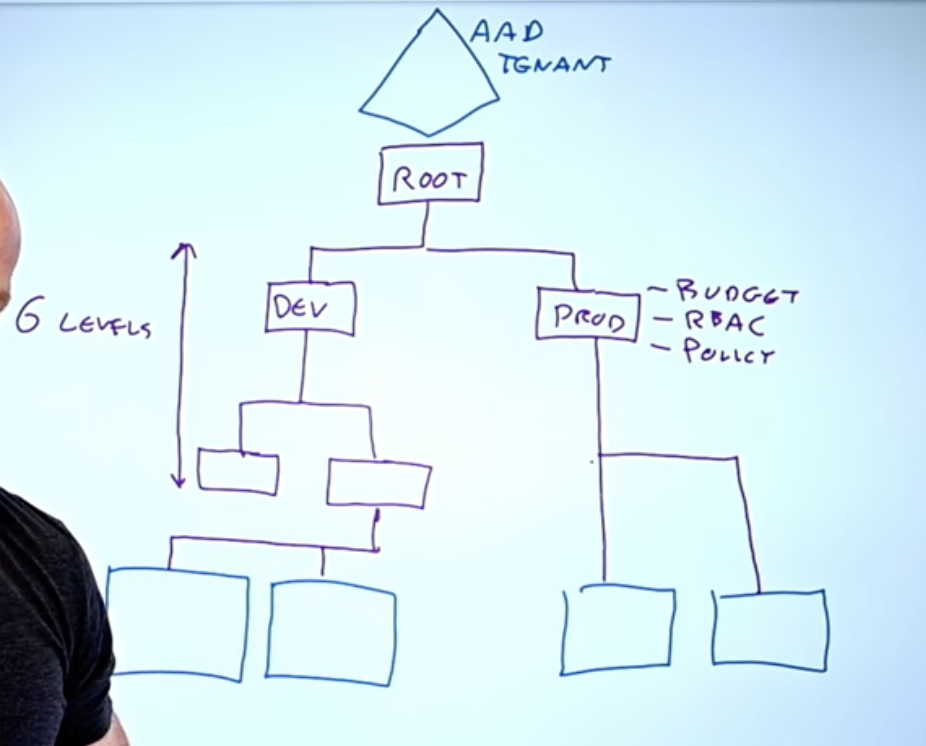 AAD
TENANT
ROOT
6 LEVELS
DEV
PROD
- BUDGET
- RBAC
- POLICY